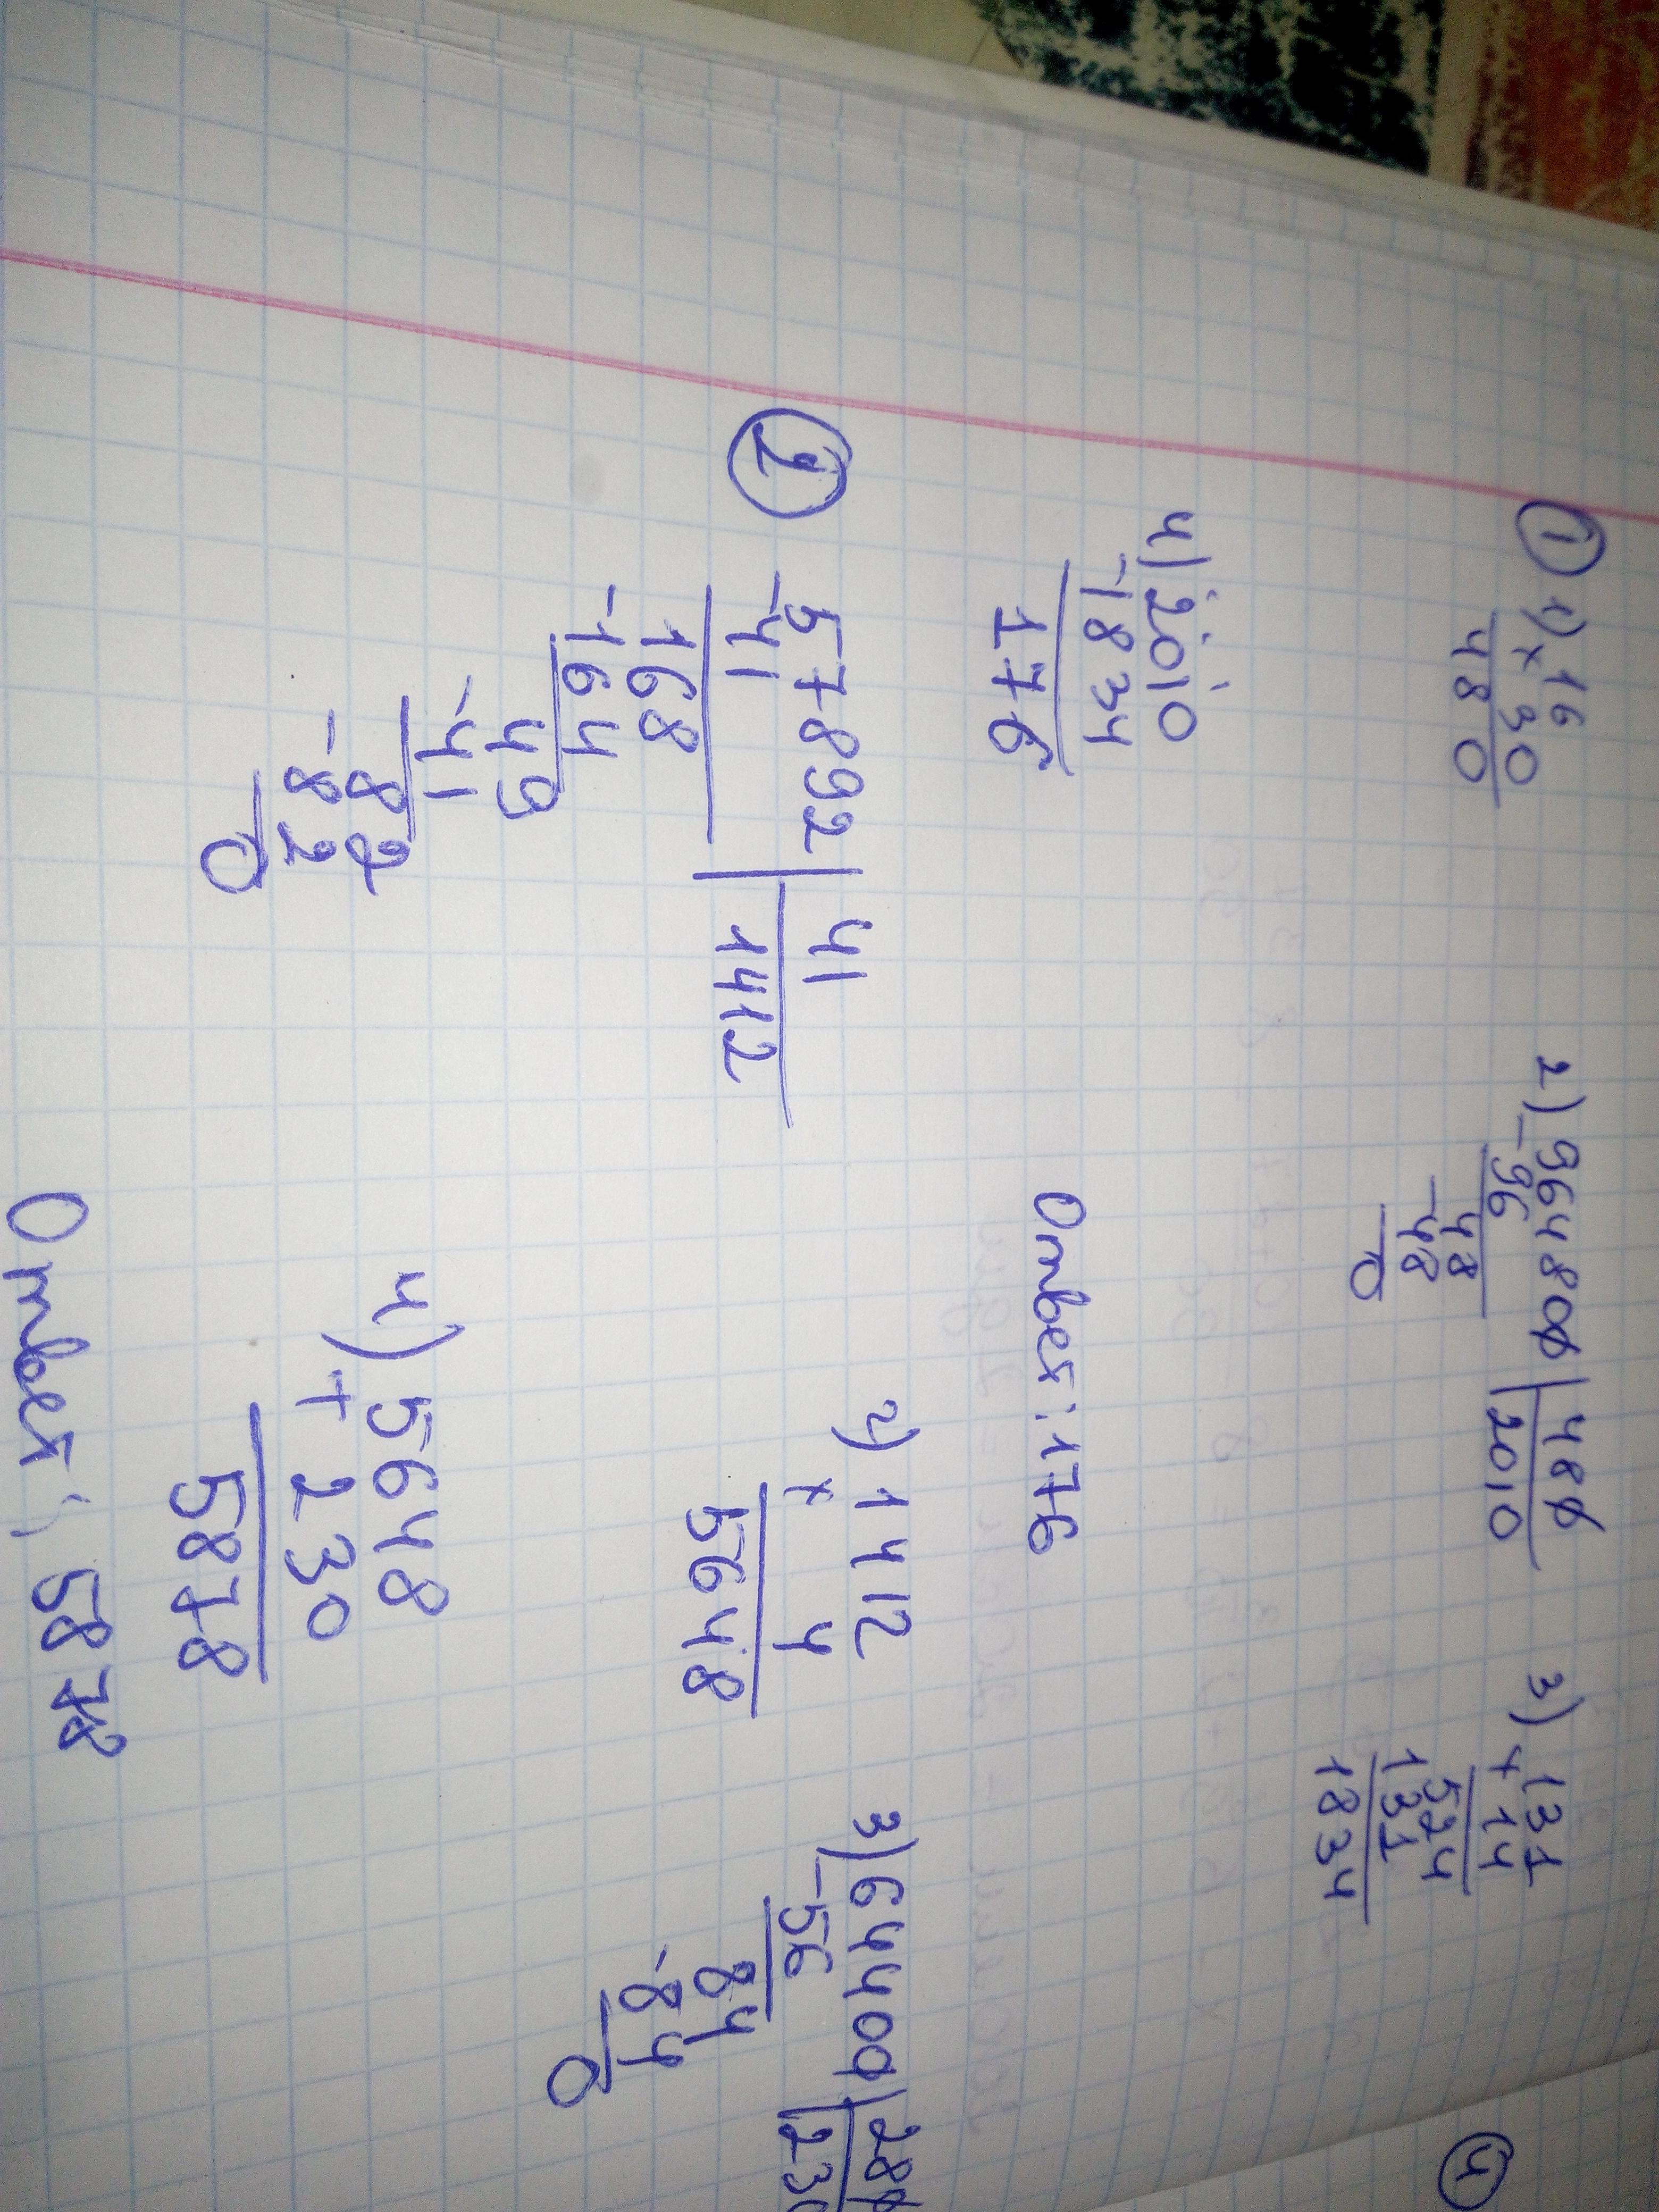 ① 1) × 16
30
480
2) 964800 | 480
- 96 2010
48
- 48
0
3) 131
× 14
524
131
1834
4) 2010
- 1834
176
Ответ: 176
④
② 57892 | 41
- 41 1412
168
- 164
49
- 41
82
- 82
0
2) 1412
× 4
5648
3) 64400 | 280
- 56 230
84
- 84
0
4) 5648
+ 230
5878
Ответ: 5878